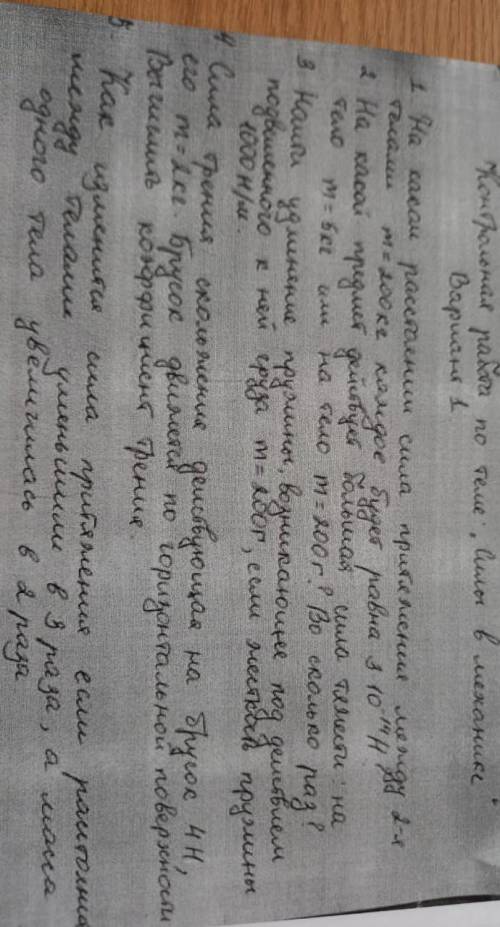 Контрольная работа по теме: „Силы в механике"
Вариант 1.
1 На каком расстоянии сила притяжения между 2-я
телами m = 200кг каждое будет равна 3 10⁻¹⁴Н
2 На какой предмет действует большая сила тяжести: на
тело m = 5кг или на тело m = 200г? Во сколько раз?
3 Найти удлинение пружины, возникающее под действием
подвешенного к ней груза m = 200г, если жесткость пружины
1000 Н/м.
4 Сила трения скольжения действующая на брусок 4Н,
его m = 2кг. Брусок движется по горизонтальной поверхности
Вычислить коэффициент трения.
5. Как изменится сила притяжения если расстояние
между телами уменьшить в 3 раза, а масса
одного тела увеличилась в 2 раза